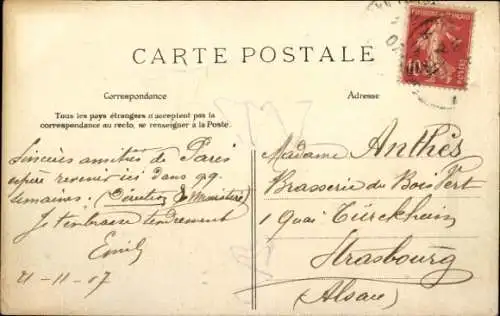 CARTE POSTALE
Correspondance
Adresse
Tous les pays étrangers n'acceptent pas la
correspondance au recto, se renseigner à la Poste.
Sincères amitiés de Paris
espère revenir ici dans qq.
semaines. (Décision du Ministère)
Je t'embrasse tendrement
Emile
21-11-07
Madame Anthès
Brasserie du Bois Vert
1 Quai Türckheim
Strasbourg
(Alsace)
10